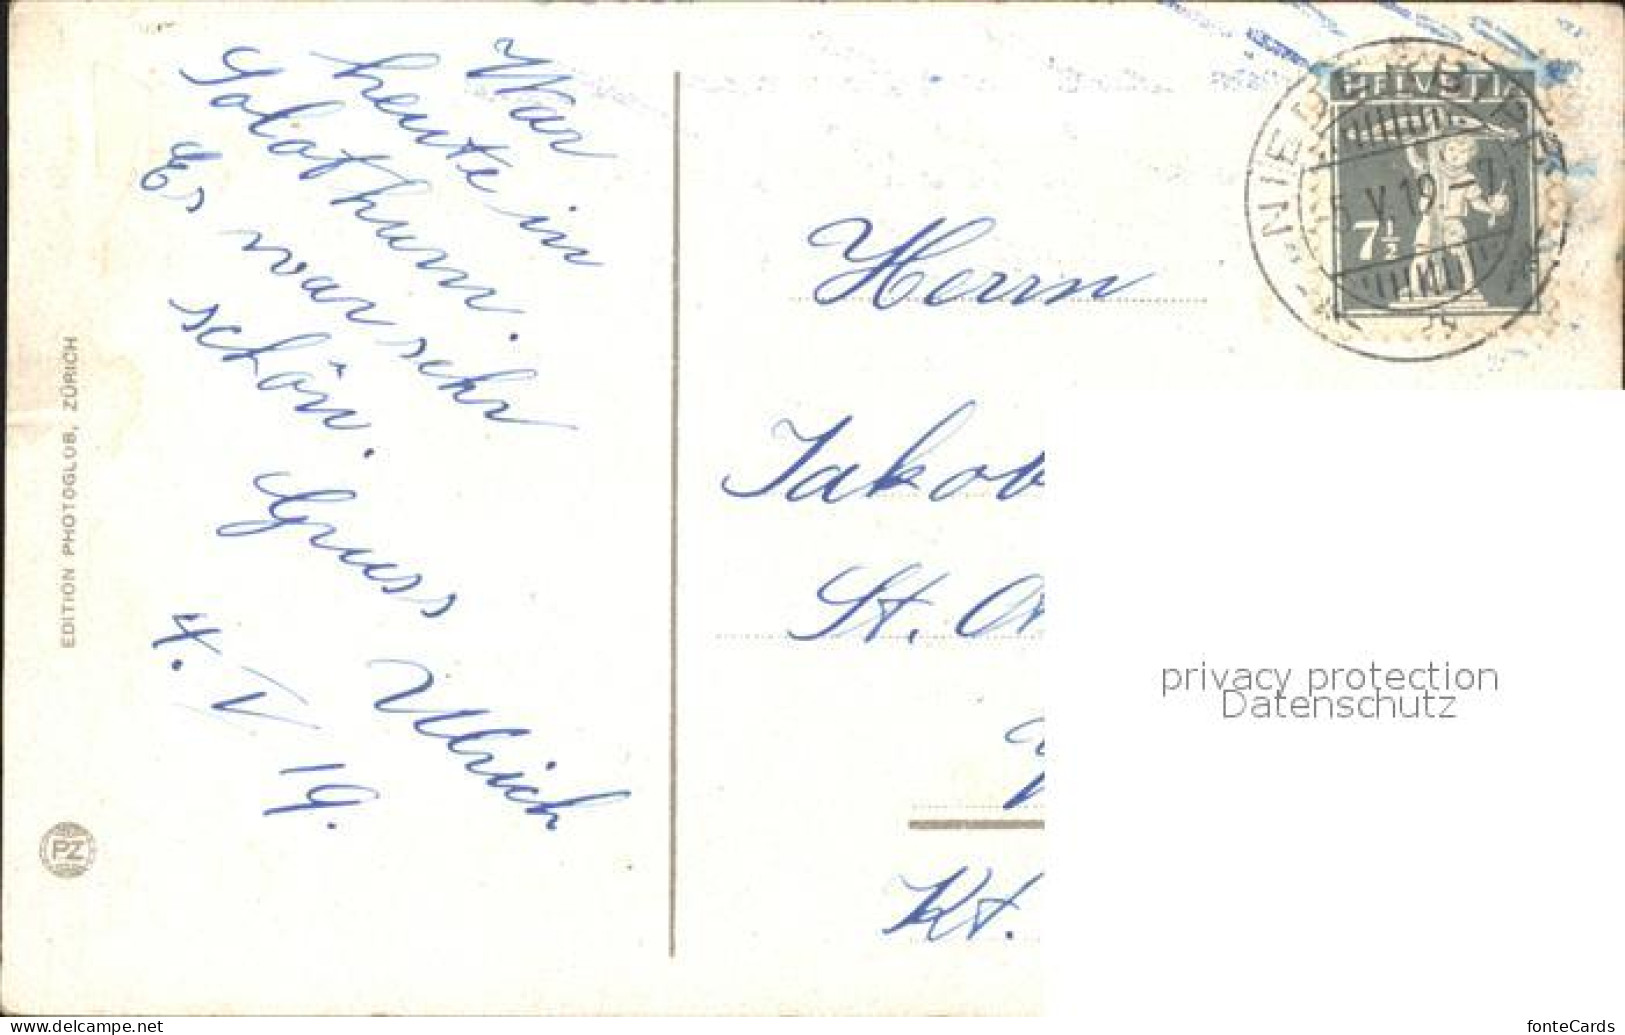 War
heute in
Solothurn.
Es war sehr
schön.
Gruss
Ullrich
4. V 19.
EDITION PHOTOGLOB, ZÜRICH
PZ
HELVETIA
7½
5. V. 19. -7
Herrn
Jakob
St.
Kt.
privacy protection
Datenschutz
www.delcampe.net
fonteCards